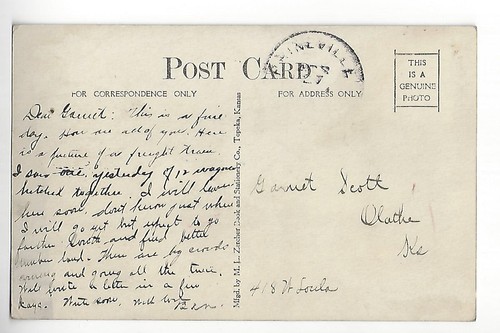 POST CARD
FOR CORRESPONDENCE ONLY
FOR ADDRESS ONLY
THIS
IS A
GENUINE
PHOTO
Dear Garnet: This is a fine
day. How are all of you. Here
is a picture of a freight train.
I saw one yesterday of 12 wagons
hitched together. I will leave
here soon. don't know just where
I will go yet but expect to go
farther South and find better
land. There are big crowds
coming and going all the time.
Will write a letter in a few
days. Write soon.
Mfgd. by M. L. Zercher Book and Stationery Co., Topeka, Kansas
Garnet Scott
Olathe
Ks
418 W Loula